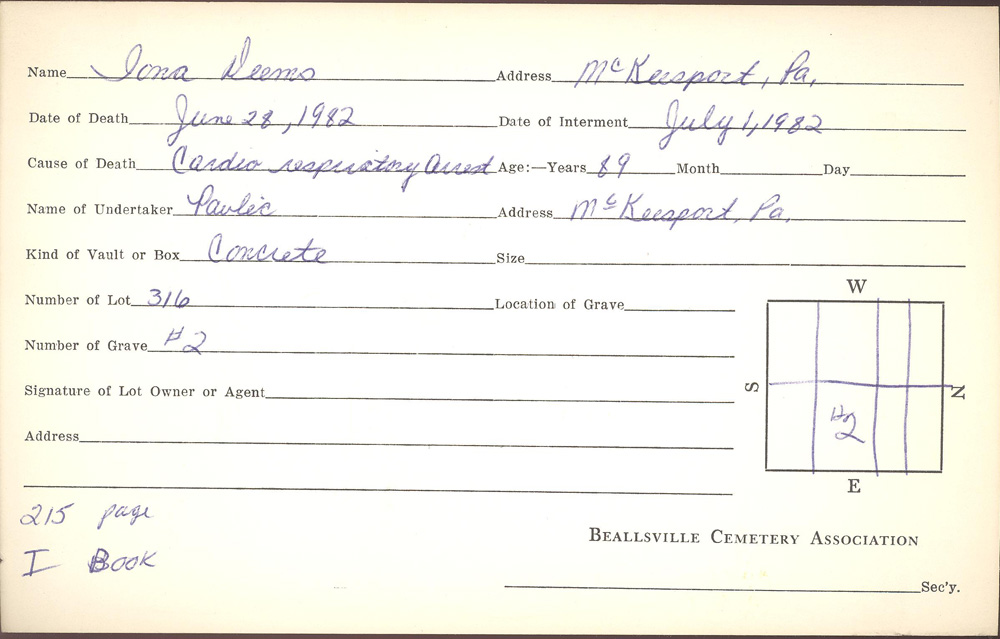 Name Iona Deems Address McKeesport, Pa.
Date of Death June 28, 1982 Date of Interment July 1, 1982
Cause of Death Cardio respiratory arrest Age:—Years 89 Month Day
Name of Undertaker Pavlic Address McKeesport, Pa.
Kind of Vault or Box Concrete Size
Number of Lot 316 Location of Grave
Number of Grave #2
Signature of Lot Owner or Agent
Address
W
S
N
#2
E
215 page
I Book
BEALLSVILLE CEMETERY ASSOCIATION
Sec'y.